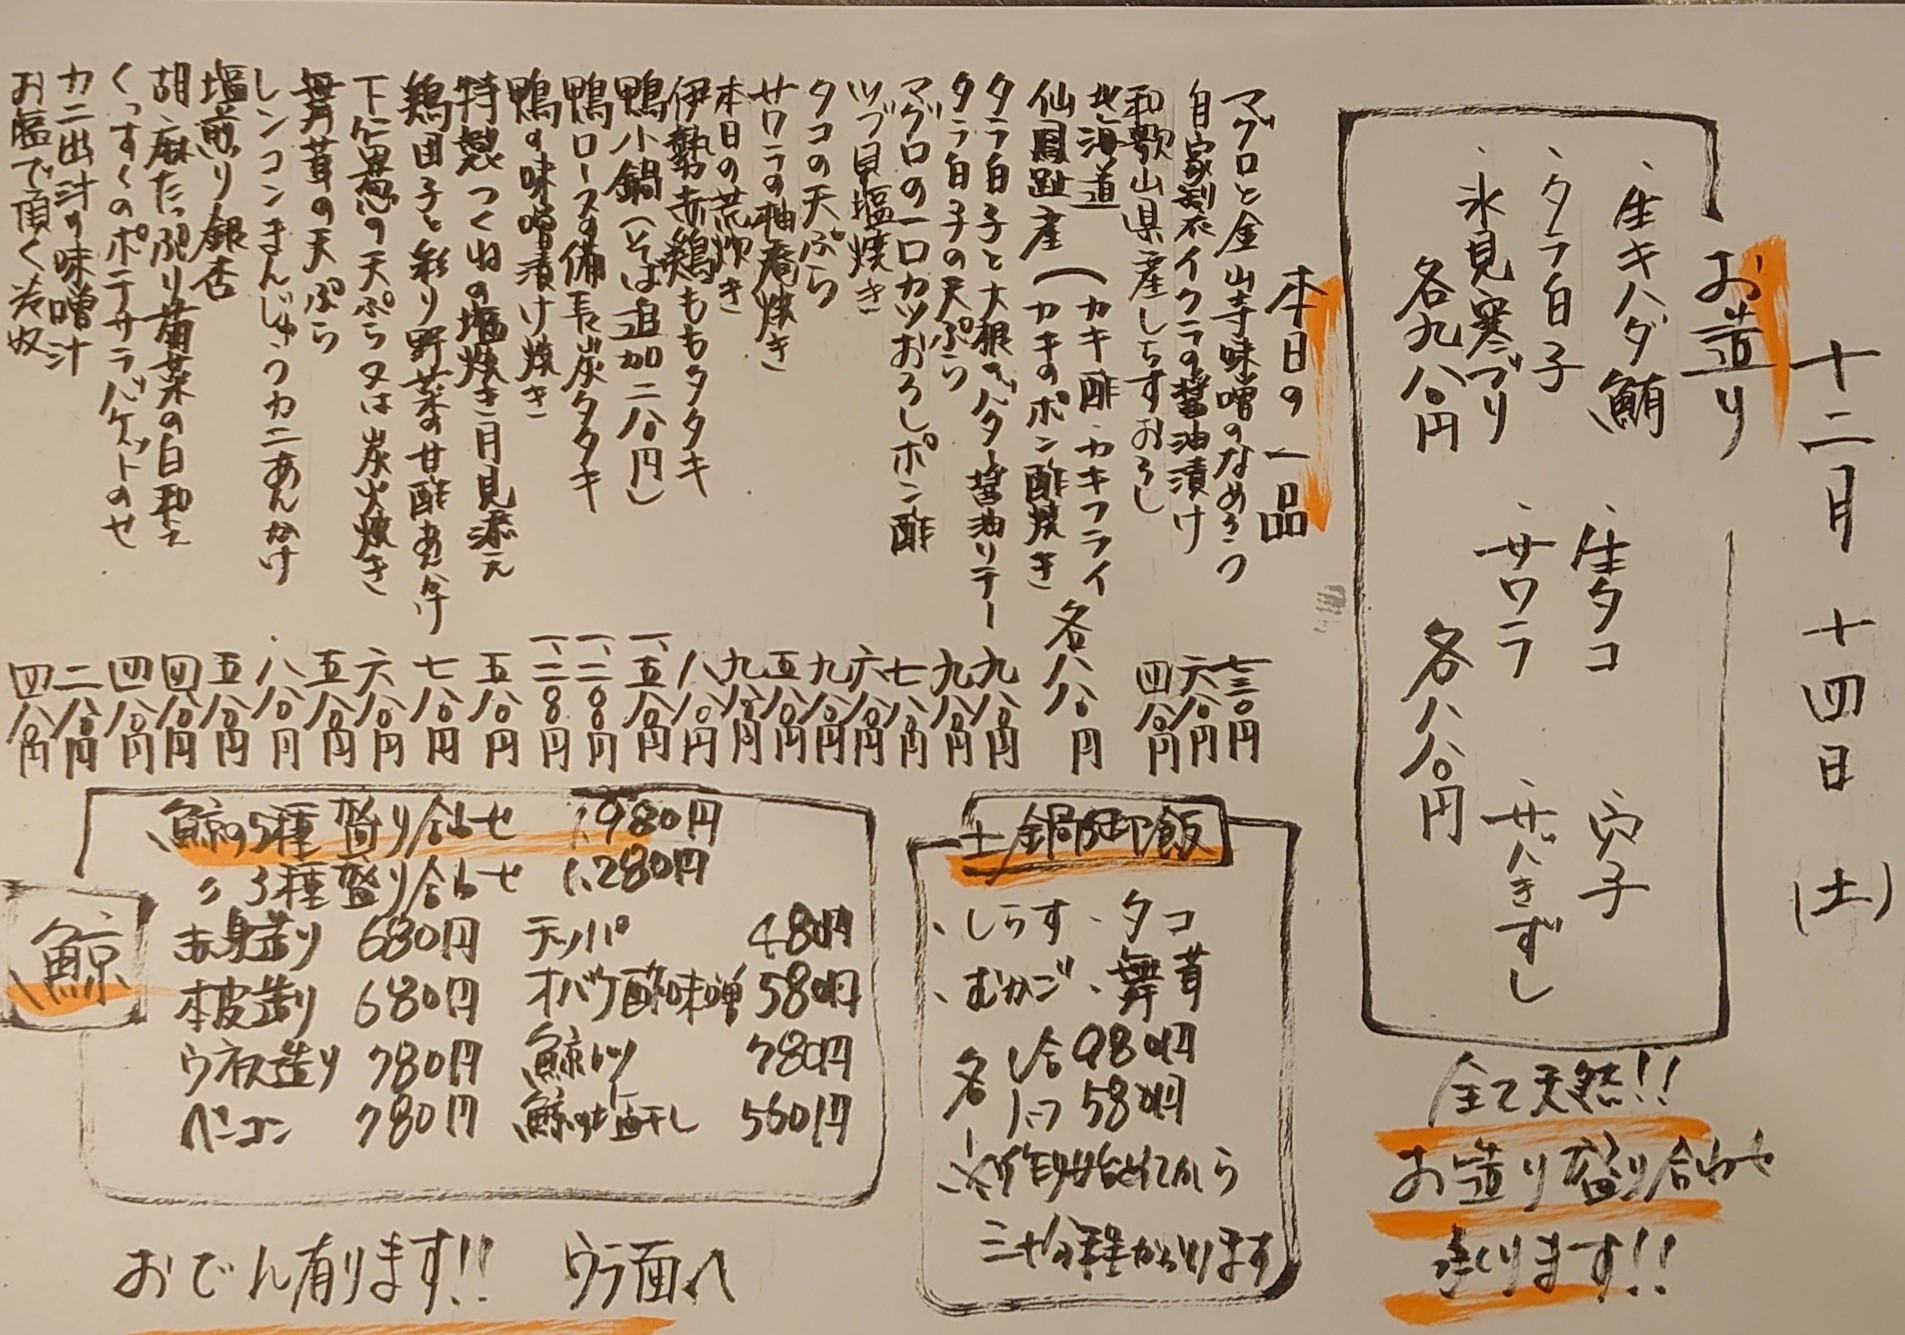 十二月十四日(土)
お造り
・生キハダ鮪
・タラ白子
・氷見寒ブリ
各九八〇円
・生タコ
・サワラ
・穴子
・サバきずし
各八八〇円
全て天然!!
お造り盛り合わせ
承ります!!
本日の一品
マグロと金山寺味噌のなめろう 七三〇円
自家製イクラの醤油漬け 六八〇円
和歌山県産しらすおろし 四八〇円
北海道
仙鳳趾産(カキ酢・カキフライ
カキのポン酢焼き 各八八〇円
タラ白子と大根のバター醤油ソテー 九八〇円
タラ白子の天ぷら 九八〇円
マグロの一口カツおろしポン酢 七八〇円
ツブ貝塩焼き 六八〇円
タコの天ぷら 九八〇円
サワラの柚庵焼き 五八〇円
本日の荒炊き 九八〇円
伊勢赤鶏ももタタキ 八八〇円
鴨小鍋(そば追加二八〇円) 一、五八〇円
鴨ロースの備長炭タタキ 一、二八〇円
鴨の味噌漬け焼き 一、二八〇円
特製つくねの塩焼き月見添え 五八〇円
鶏団子と彩り野菜の甘酢あんかけ 七八〇円
下仁田葱の天ぷら又は炭火焼き 六八〇円
舞茸の天ぷら 五八〇円
レンコンまんじゅうカニあんかけ 八八〇円
塩煎り銀杏 五八〇円
胡麻たっぷり菊菜の白和え 四八〇円
くつすくのポテサラバゲットのせ 四八〇円
カニ出汁の味噌汁 二八〇円
お塩で頂く冷奴 四八〇円
土鍋御飯
・しらす・タコ
・むかご・舞茸
各 1合 980円
ハーフ 580円
※作り始めてから
三十分程かかります
鯨
鯨の5種盛り合わせ 1,980円
〃 3種盛り合わせ 1,280円
赤身造り 680円
本皮造り 680円
ウネス造り 780円
ベーコン 780円
テッパ 480円
オバケ酢味噌 580円
鯨カツ 780円
鯨の塩干し 560円
おでん有ります!! ウラ面へ